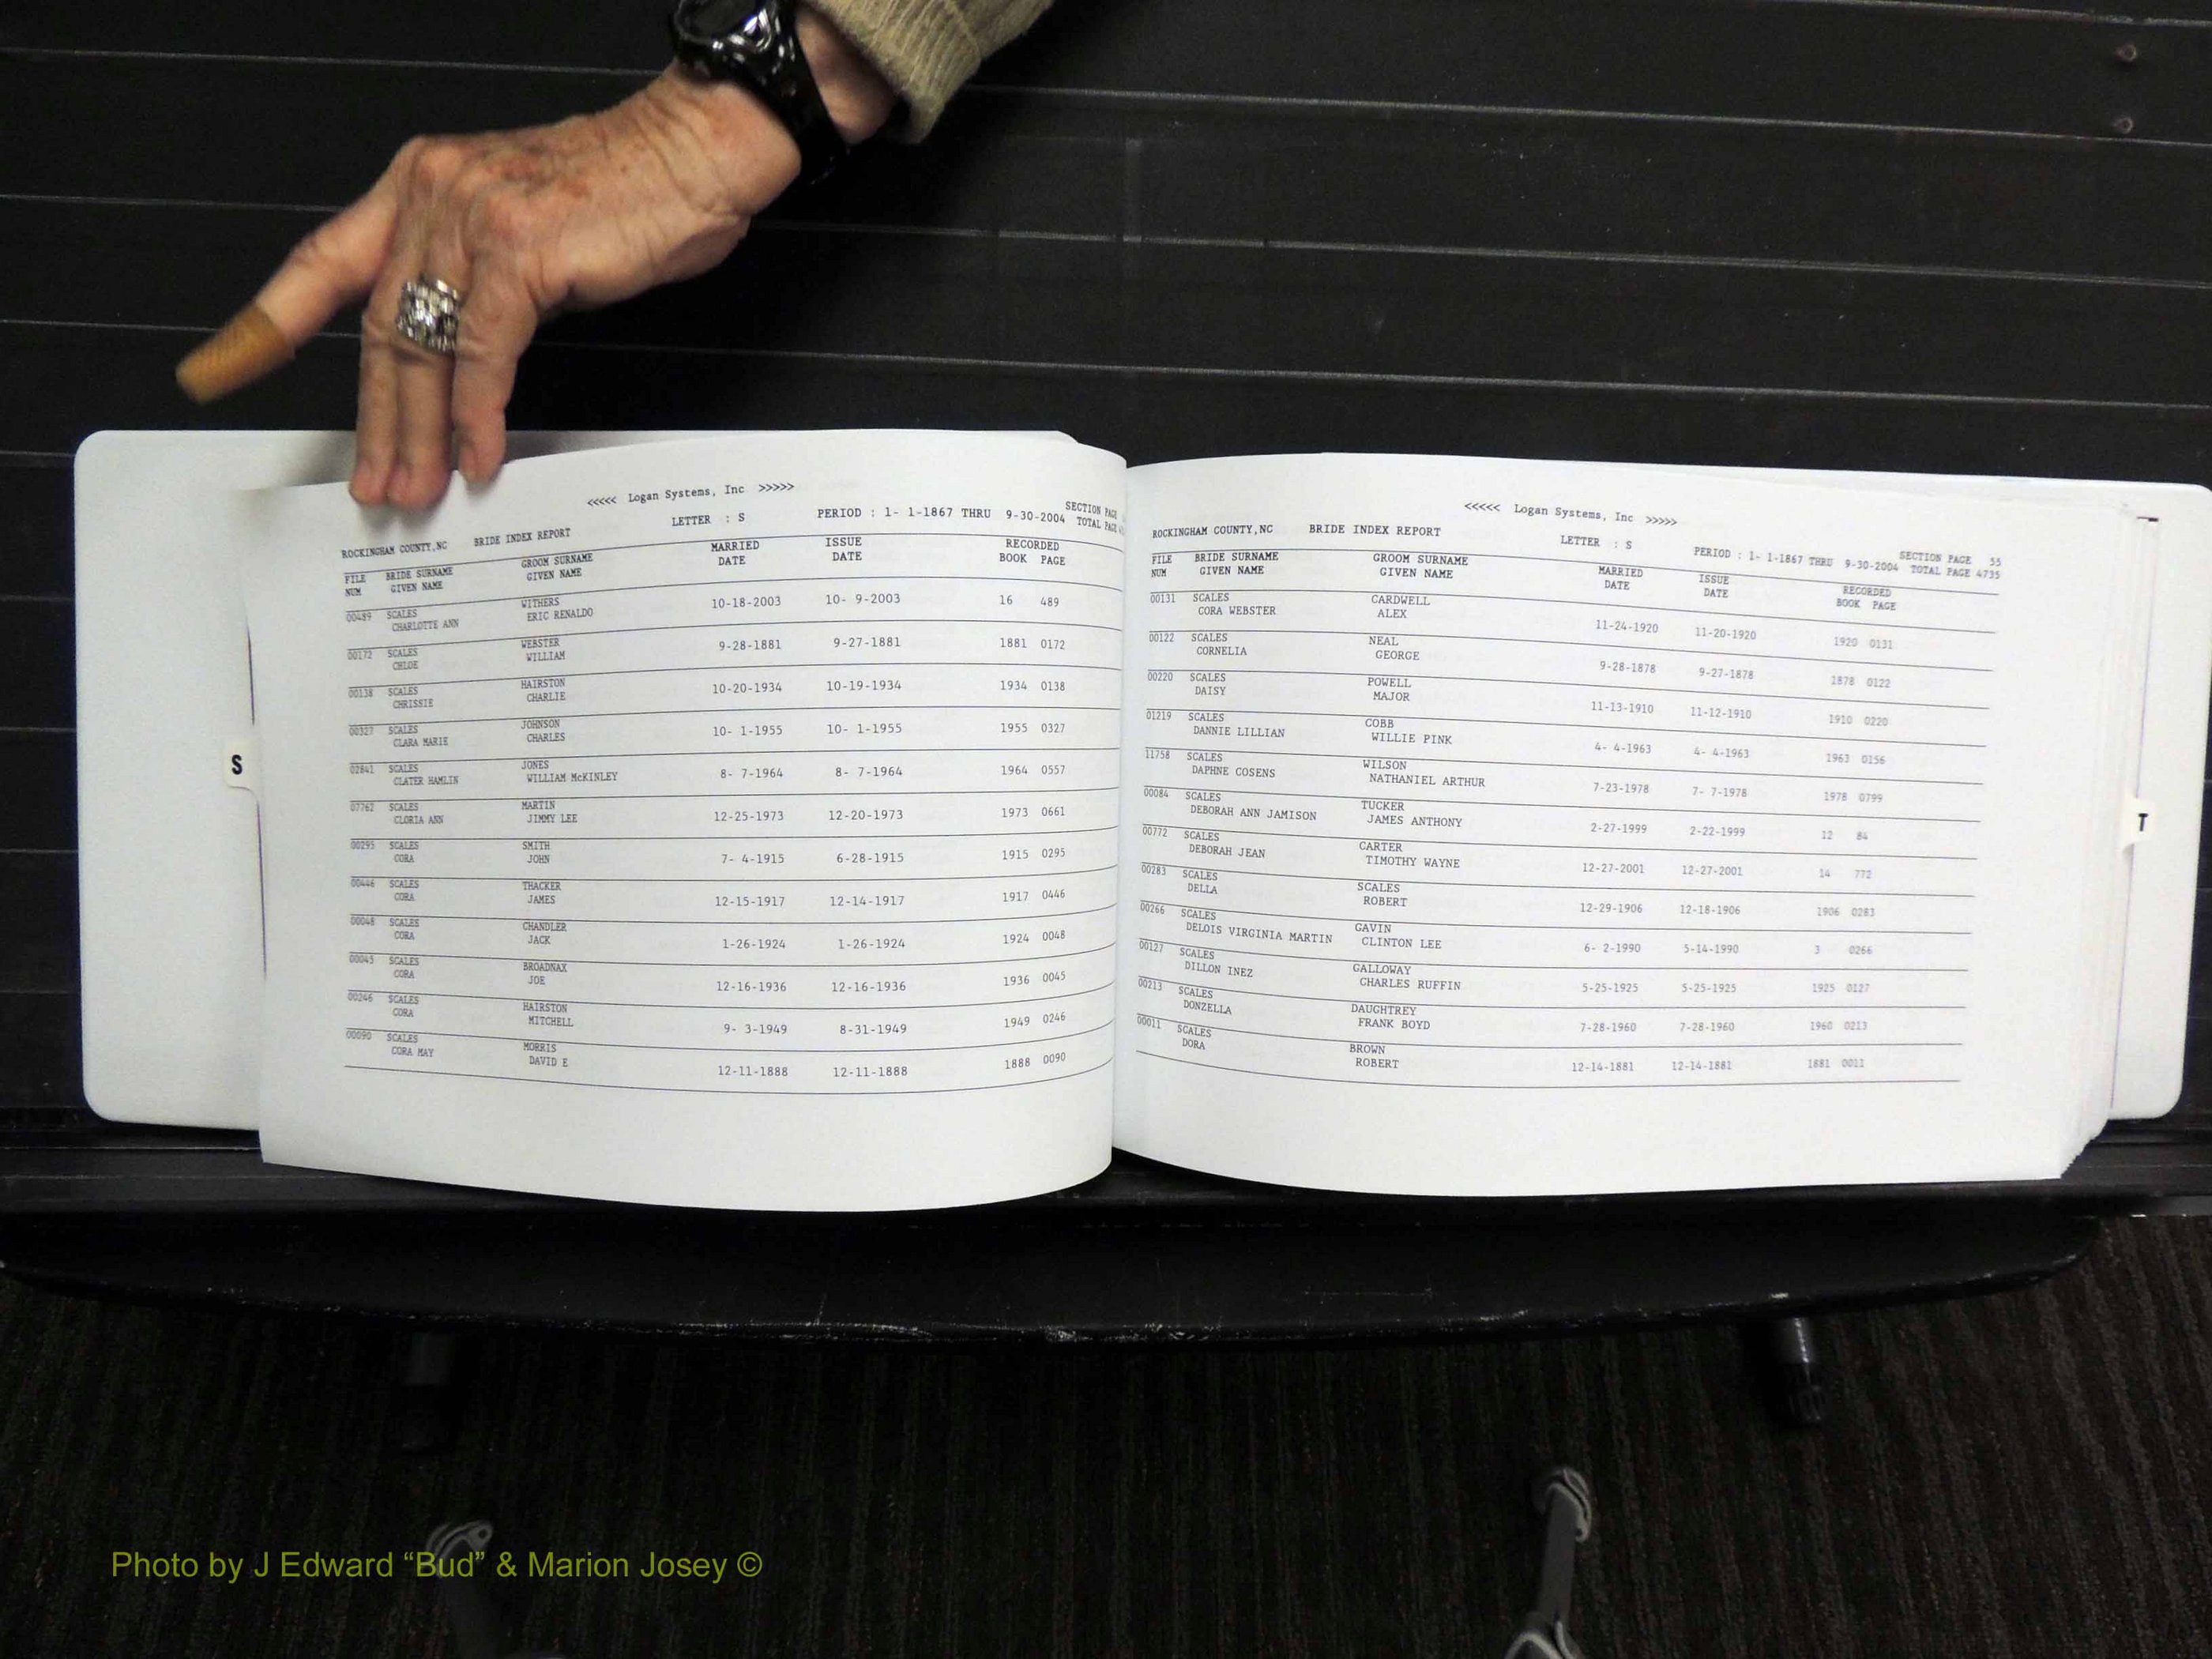 <<<<< Logan Systems, Inc >>>>>
ROCKINGHAM COUNTY,NC BRIDE INDEX REPORT LETTER : S PERIOD : 1- 1-1867 THRU 9-30-2004 SECTION PAGE
TOTAL PAGE
FILE BRIDE SURNAME GROOM SURNAME MARRIED ISSUE RECORDED
NUM GIVEN NAME GIVEN NAME DATE DATE BOOK PAGE
00489 SCALES WITHERS 10-18-2003 10- 9-2003 16 489
CHARLOTTE ANN ERIC RENALDO
00172 SCALES WEBSTER 9-28-1881 9-27-1881 1881 0172
CHLOE WILLIAM
00138 SCALES HAIRSTON 10-20-1934 10-19-1934 1934 0138
CHRISSIE CHARLIE
00327 SCALES JOHNSON 10- 1-1955 10- 1-1955 1955 0327
CLARA MARIE CHARLES
02841 SCALES JONES 8- 7-1964 8- 7-1964 1964 0557
CLATER HAMLIN WILLIAM McKINLEY
07762 SCALES MARTIN 12-25-1973 12-20-1973 1973 0661
CLORIA ANN JIMMY LEE
00295 SCALES SMITH 7- 4-1915 6-28-1915 1915 0295
CORA JOHN
00446 SCALES THACKER 12-15-1917 12-14-1917 1917 0446
CORA JAMES
00048 SCALES CHANDLER 1-26-1924 1-26-1924 1924 0048
CORA JACK
00045 SCALES BROADNAX 12-16-1936 12-16-1936 1936 0045
CORA JOE
00246 SCALES HAIRSTON 9- 3-1949 8-31-1949 1949 0246
CORA MITCHELL
00090 SCALES MORRIS 12-11-1888 12-11-1888 1888 0090
CORA MAY DAVID E
S
<<<<< Logan Systems, Inc >>>>>
ROCKINGHAM COUNTY,NC BRIDE INDEX REPORT LETTER : S PERIOD : 1- 1-1867 THRU 9-30-2004 SECTION PAGE 55
TOTAL PAGE 4735
FILE BRIDE SURNAME GROOM SURNAME MARRIED ISSUE RECORDED
NUM GIVEN NAME GIVEN NAME DATE DATE BOOK PAGE
00131 SCALES CARDWELL 11-24-1920 11-20-1920 1920 0131
CORA WEBSTER ALEX
00122 SCALES NEAL 9-28-1878 9-27-1878 1878 0122
CORNELIA GEORGE
00220 SCALES POWELL 11-13-1910 11-12-1910 1910 0220
DAISY MAJOR
01219 SCALES COBB 4- 4-1963 4- 4-1963 1963 0156
DANNIE LILLIAN WILLIE PINK
11758 SCALES WILSON 7-23-1978 7- 7-1978 1978 0799
DAPHNE COSENS NATHANIEL ARTHUR
00084 SCALES TUCKER 2-27-1999 2-22-1999 12 84
DEBORAH ANN JAMISON JAMES ANTHONY
00772 SCALES CARTER 12-27-2001 12-27-2001 14 772
DEBORAH JEAN TIMOTHY WAYNE
00283 SCALES SCALES 12-29-1906 12-18-1906 1906 0283
DELLA ROBERT
00266 SCALES GAVIN 6- 2-1990 5-14-1990 3 0266
DELOIS VIRGINIA MARTIN CLINTON LEE
00127 SCALES GALLOWAY 5-25-1925 5-25-1925 1925 0127
DILLON INEZ CHARLES RUFFIN
00213 SCALES DAUGHTREY 7-28-1960 7-28-1960 1960 0213
DONZELLA FRANK BOYD
00011 SCALES BROWN 12-14-1881 12-14-1881 1881 0011
DORA ROBERT
T
Photo by J Edward “Bud” & Marion Josey ©